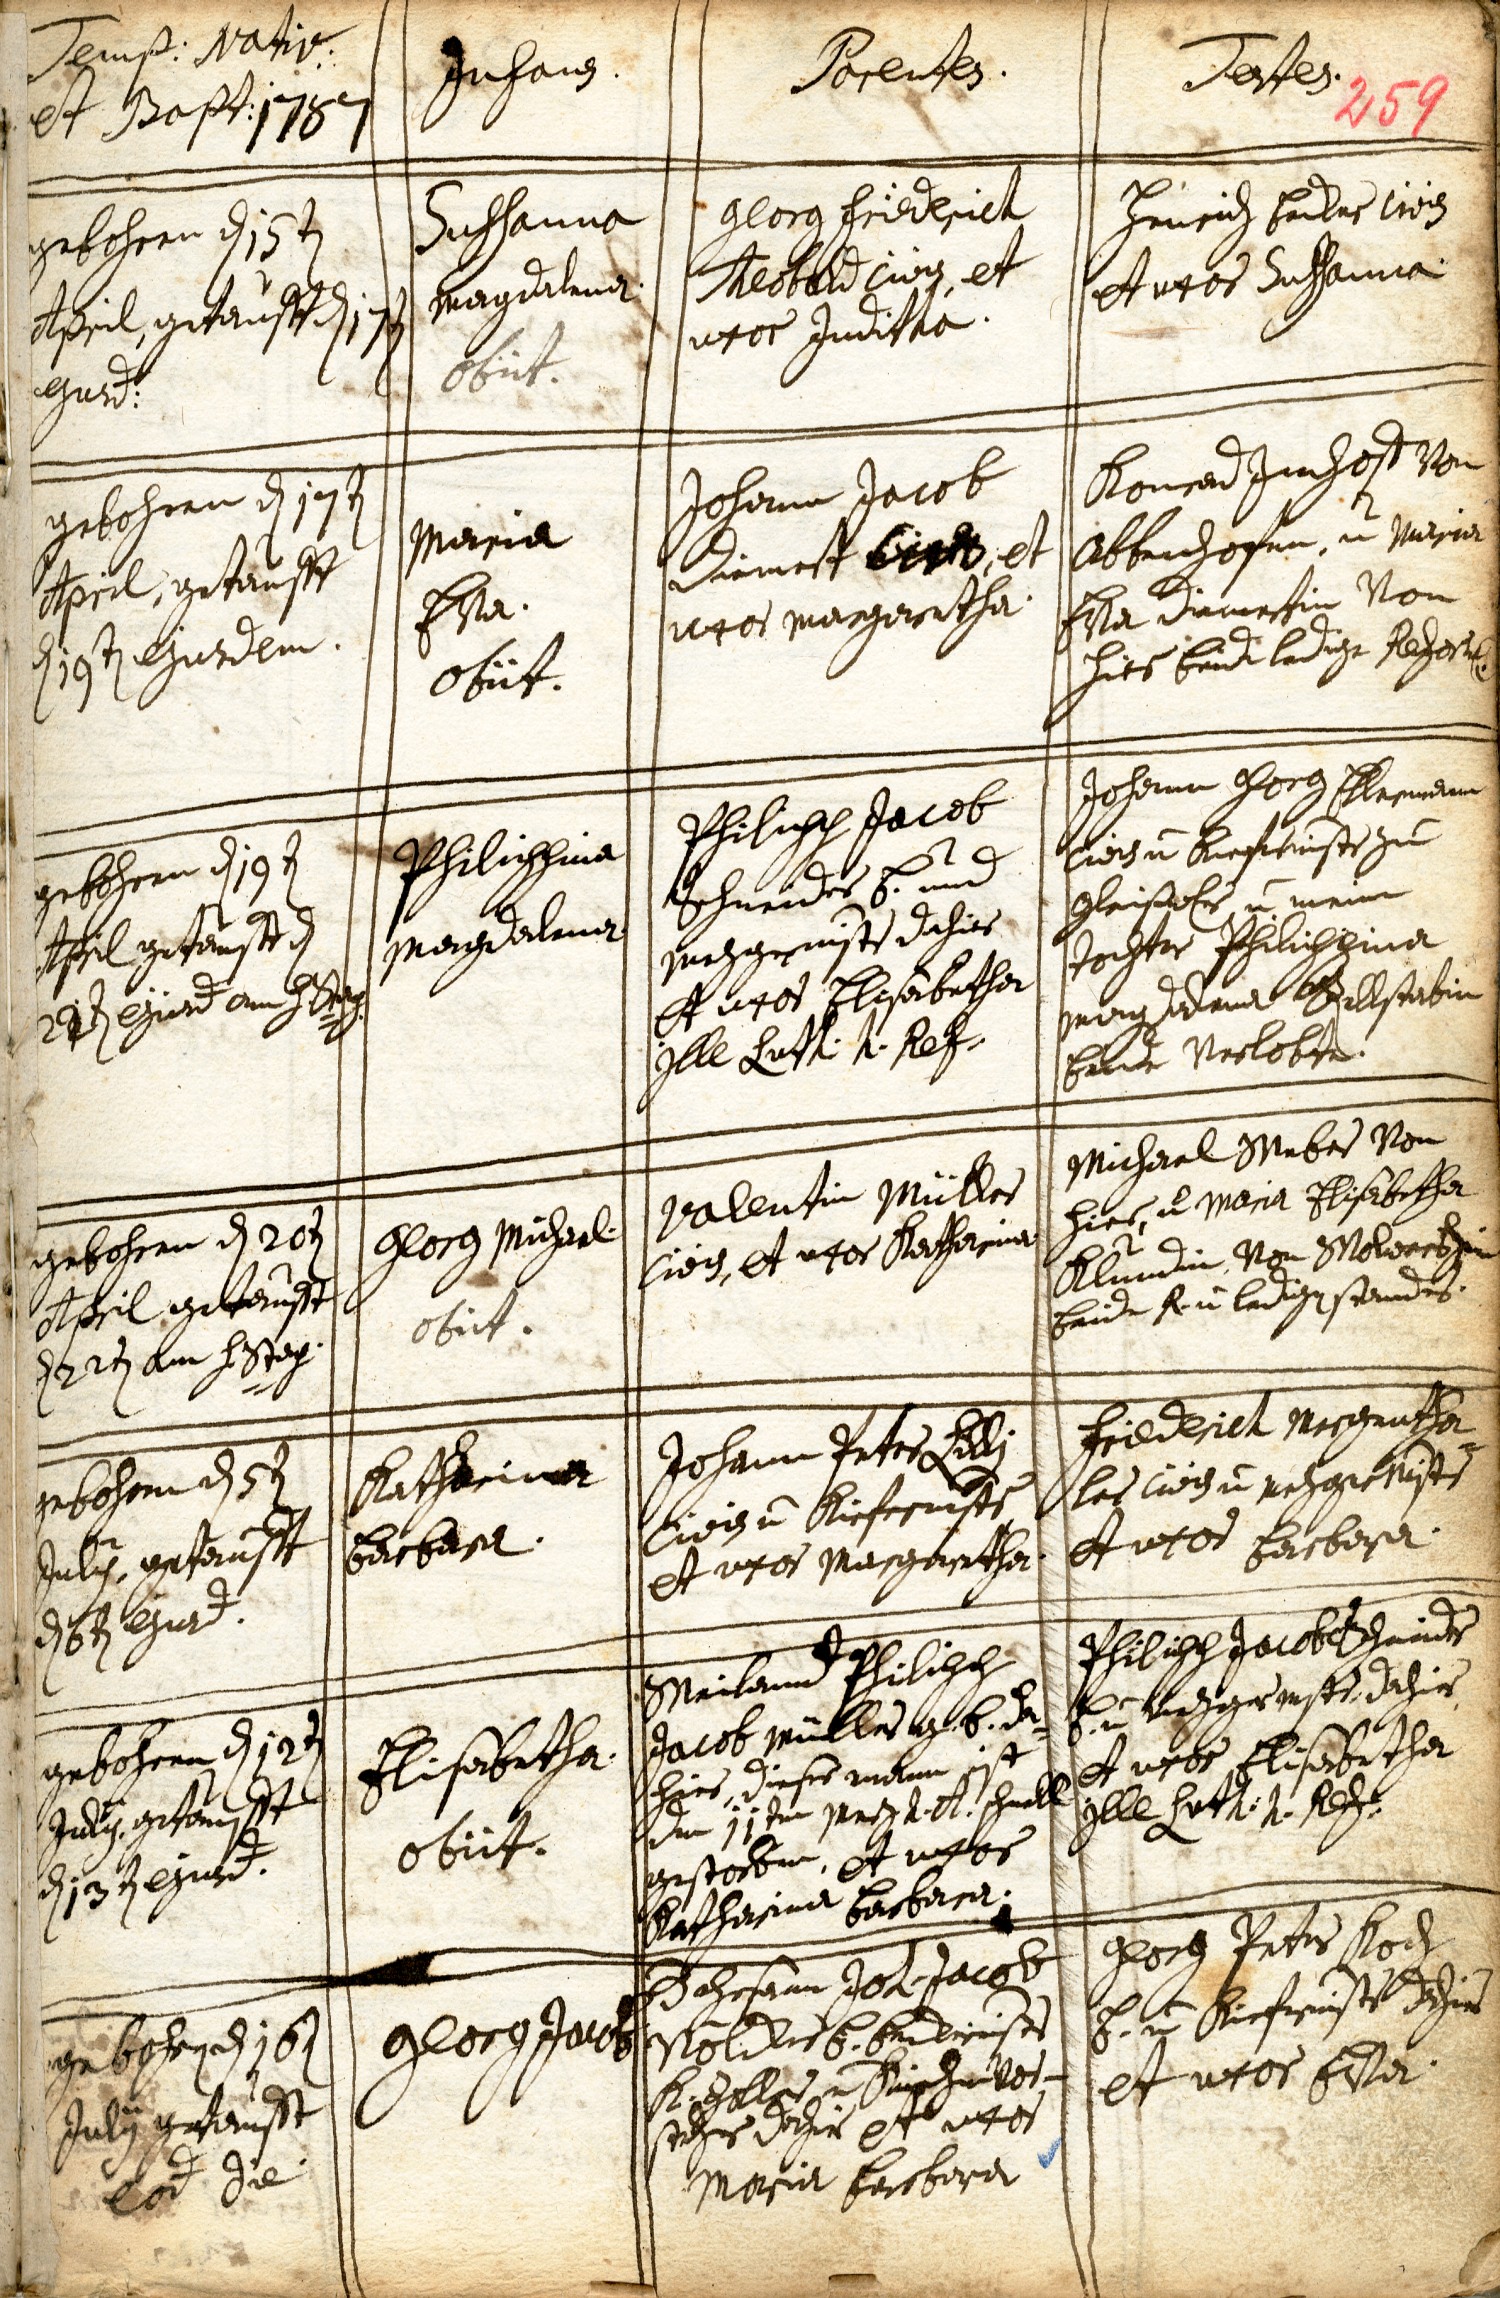 Temp: Nativ:
et Bapt: 1787
Infans.
Parentes.
Testes.
259
gebohren d 15t
April, getaufft d 17t
ejusd:
Sussanna
Magdalena.
obiit.
Georg Friederich
Theobald civis, et
uxor Juditha.
Henrich Becker civis
et uxor Sussanna
gebohren d 17t
April, getaufft
d 19t ejusdem.
Maria
Eva.
obiit.
Johann Jacob
Diemert civis, et
uxor Margaretha.
Konrad Imhoff von
Abbenhofen, u Maria
Eva Diemertin von
hier beide ledige Reform.
gebohren d 19t
April getaufft d
22t ejusd am h. Stag.
Philippina
Magdalena
Philipp Jacob
Schneider b. und
Mezgermstr dahier
et uxor Elisabetha
Ille Luth: h. Ref.
Johann Georg Ellermann
civis u Kiefermstr zu
u meine
Tochter Philippina
Magdalena
beide Verlobte.
gebohren d 20t
April getaufft
d 22t am h. Stag.
Georg Michael.
obiit.
Valentin Müller
civis, et uxor Katharina
Michael Weber von
hier, u Maria Elisabetha
Klundin, von
beide R. u ledig standes.
gebohren d 5t
July, getaufft
d 6t ejusd.
Katharina
Barbara.
Johann Peter Lilli
civis u Kiefermstr
et uxor Margaretha.
Friederich Mergentha-
ler civis u Mezgermstr
et uxor Barbara.
gebohren d 12t
July, getaufft
d 13t ejusd.
Elisabetha.
obiit.
Weiland Philipp
Jacob Müller g. b. da-
hier, dieser mann ist
den 11ten schnell
gestorben, et uxor
Katharina Barbara.
Philipp Jacob Schneider
b. u Mezgermstr. dahier,
et uxor Elisabetha
Ille Luth: h. Ref.
gebohren d 16t
July getaufft
eod die.
Georg Jacob
Ehrsam Joh. Jacob
Nölder b. Beckermstr
u Kirchenvor-
steher dahier et uxor
Maria Barbara
Georg Peter Koch
b. u Kiefermstr dahier
et uxor Eva.